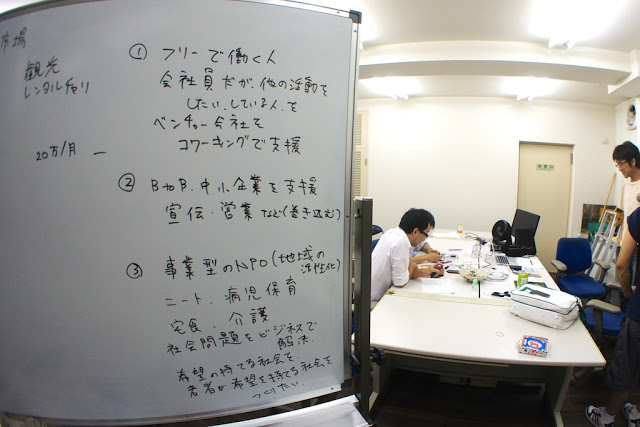 市場
観光
レンタルチャリ
20万/月 —
① フリーで働く人
会社員だが、他の活動を
したい、している人を
ベンチャー会社を
コワーキングで支援
② BtoB、中小企業を支援
宣伝・営業など(巻き込む)
③ 事業型のNPO(地域の
活性化)
ニート、病児保育
宅食、介護
社会問題をビジネスで
解決.
希望の持てる社会を.
若者が希望を持てる社会を
つくりたい.